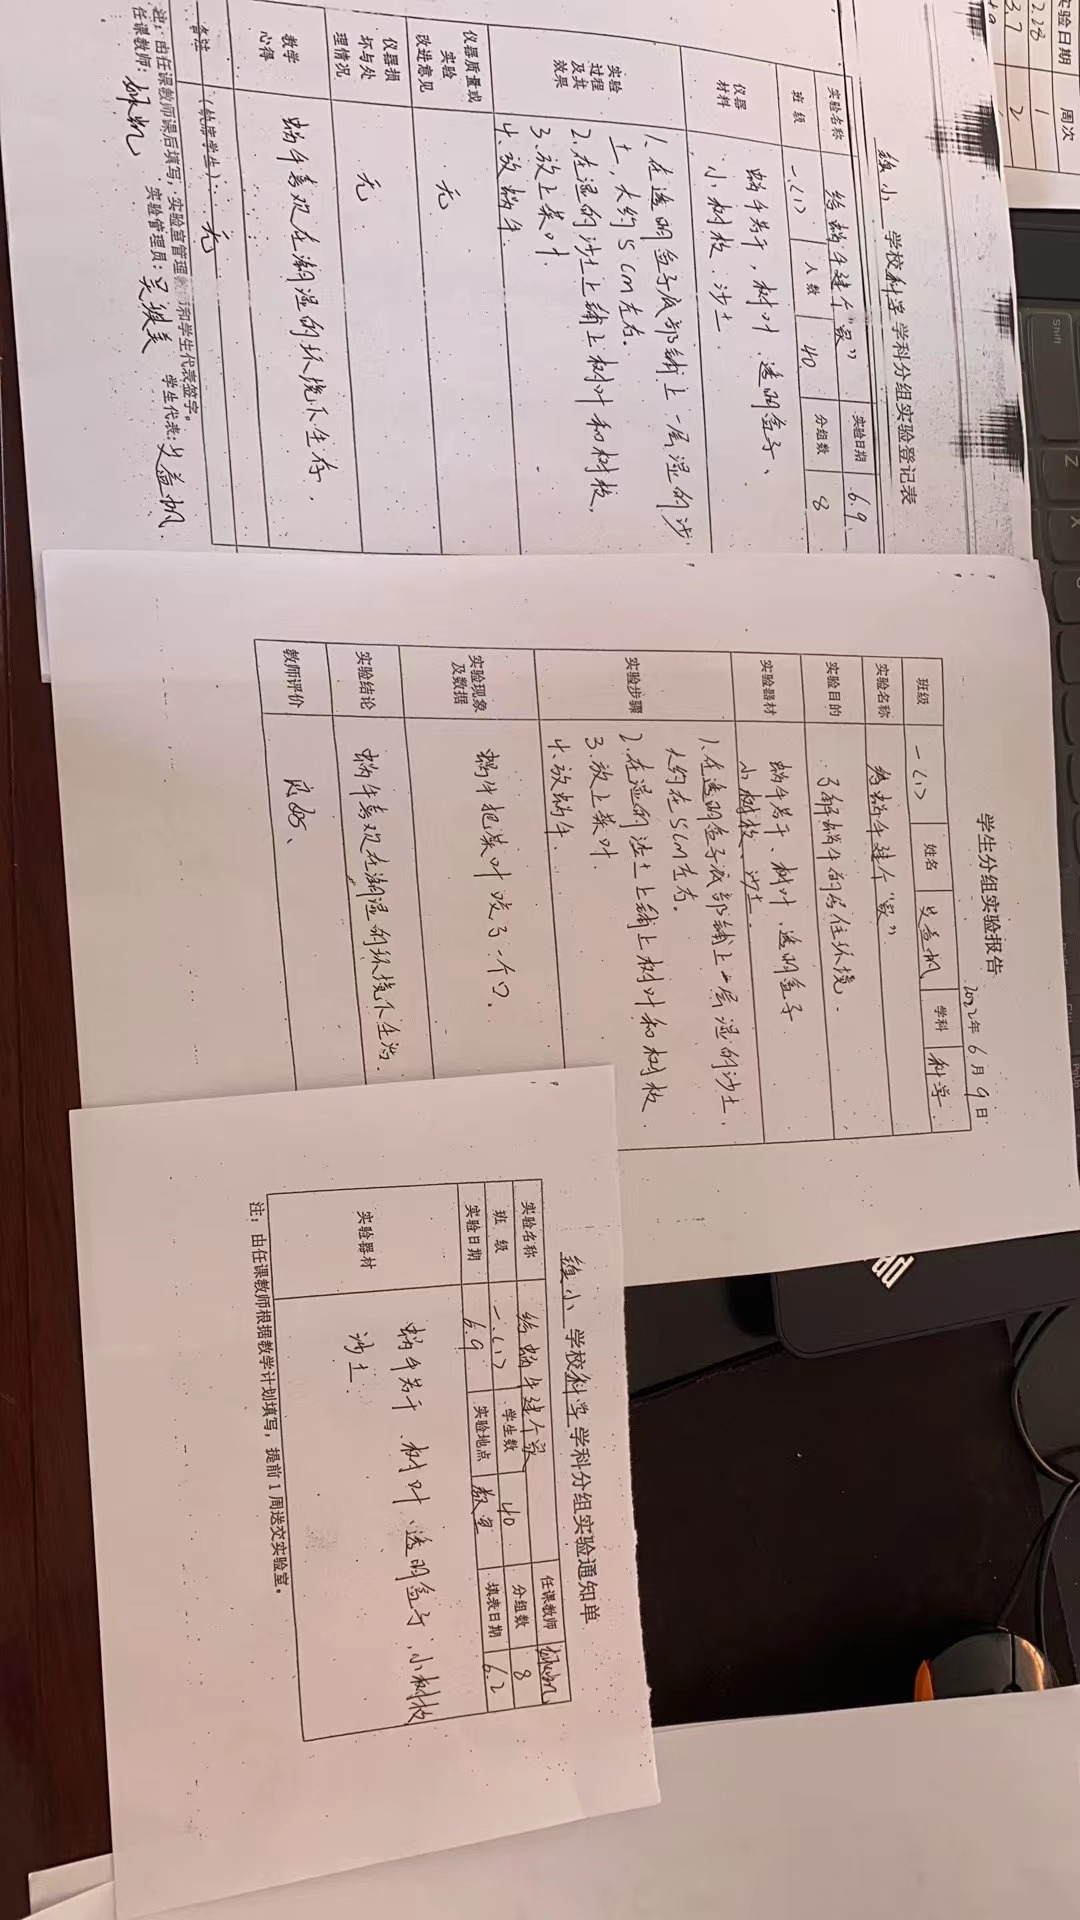 实验日期
周次
2.28
1
3.7
2
镇小 学校科学学科分组实验登记表
实验名称 给蜗牛建个“家” 实验日期 6.9
班级 一(1) 人数 40 分组数 8
仪器材料 蜗牛若干，树叶、透明盒子、
小树枝、沙土
实验过程及其效果 1、在透明盒子底部铺上一层湿的沙
土，大约5cm左右。
2、在湿的沙土上铺上树叶和树枝，
3、放上菜叶
4、放蜗牛
仪器质量或实验改进意见 无
仪器损坏与处理情况 无
教学心得 蜗牛喜欢在潮湿的环境下生存，
备注 (缺席学生)：无
注：由任课教师课后填写，实验室管理 和学生代表签字。
任课教师： 实验管理员： 学生代表：
学生分组实验报告
2022年6月9日
班级 一(1) 姓名 学科 科学
实验名称 给蜗牛建个“家”
实验目的 了解蜗牛的居住环境.
实验器材 蜗牛若干、树叶、透明盒子
小树枝、沙土
实验步骤 1、在透明盒子底部铺上一层湿的沙土，
大约在5cm左右。
2、在湿的沙土上铺上树叶和树枝
3、放上菜叶
4、放蜗牛
实验现象及数据 蜗牛把菜叶咬了一个口。
实验结论 蜗牛喜欢在潮湿的环境下生活、
教师评价 良好、
镇小 学校科学学科分组实验通知单
实验名称 给蜗牛建个家 任课教师
班级 一(1) 学生数 40 分组数 8
实验日期 6.9 实验地点 教室 填表日期 6.2
实验器材 蜗牛若干、树叶、透明盒子、小树枝
沙土
注：由任课教师根据教学计划填写，提前1周送交实验室。
Shift
Z
X
hp